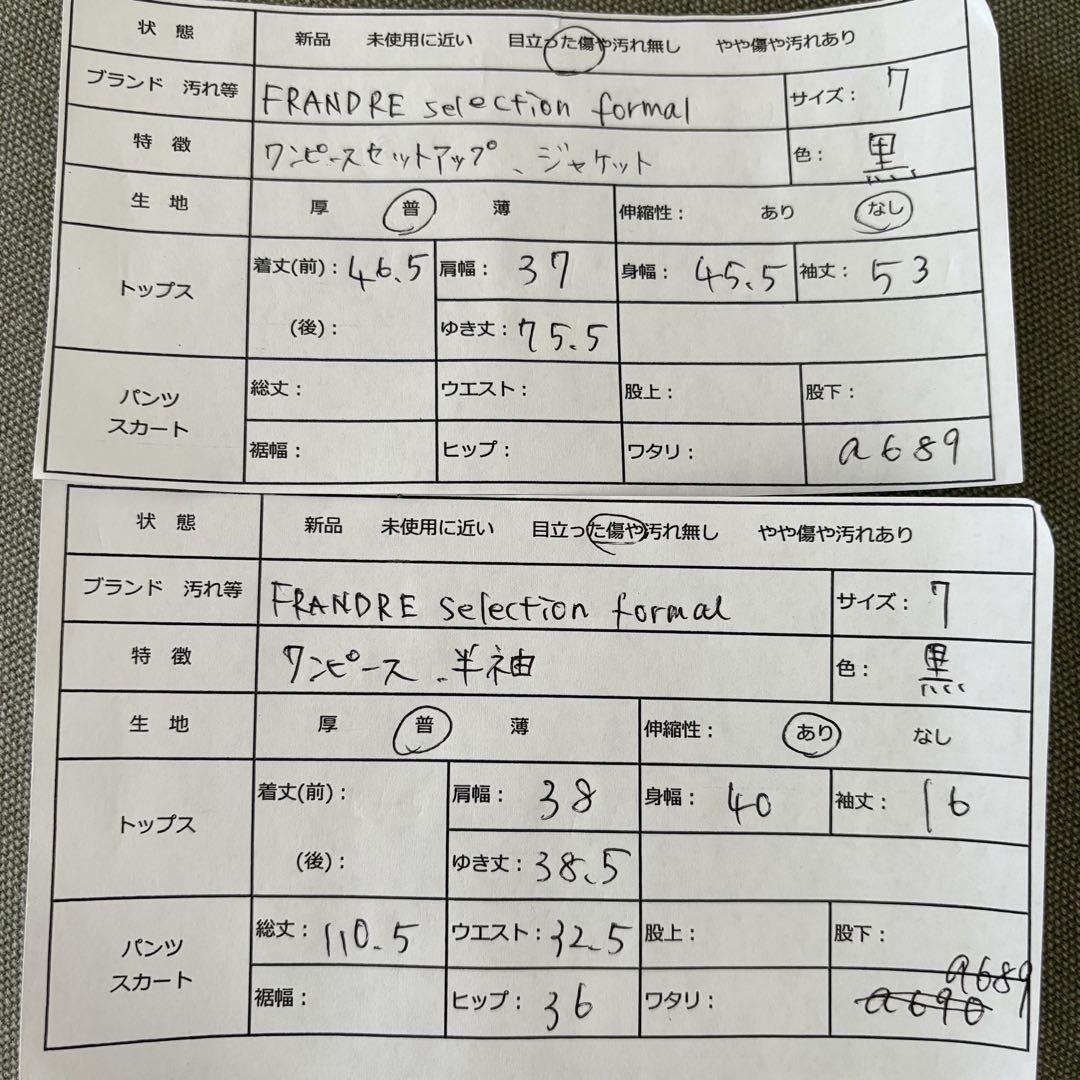 状　態　新品　未使用に近い　目立った傷や汚れ無し　やや傷や汚れあり
ブランド　汚れ等　FRANDRE selection formal　サイズ：7
特　徴　ワンピースセットアップ、ジャケット　色：黒
生　地　厚　普　薄　伸縮性：　あり　なし
トップス　着丈(前)：46.5　肩幅：37　身幅：45.5　袖丈：53
(後)：　ゆき丈：75.5
パンツ　総丈：　ウエスト：　股上：　股下：
スカート　裾幅：　ヒップ：　ワタリ：　a689
状　態　新品　未使用に近い　目立った傷や汚れ無し　やや傷や汚れあり
ブランド　汚れ等　FRANDRE selection formal　サイズ：7
特　徴　ワンピース、半袖　色：黒
生　地　厚　普　薄　伸縮性：　あり　なし
トップス　着丈(前)：　肩幅：38　身幅：40　袖丈：16
(後)：　ゆき丈：38.5
パンツ　総丈：110.5　ウエスト：32.5　股上：　股下：
a689
スカート　裾幅：　ヒップ：36　ワタリ：　a690